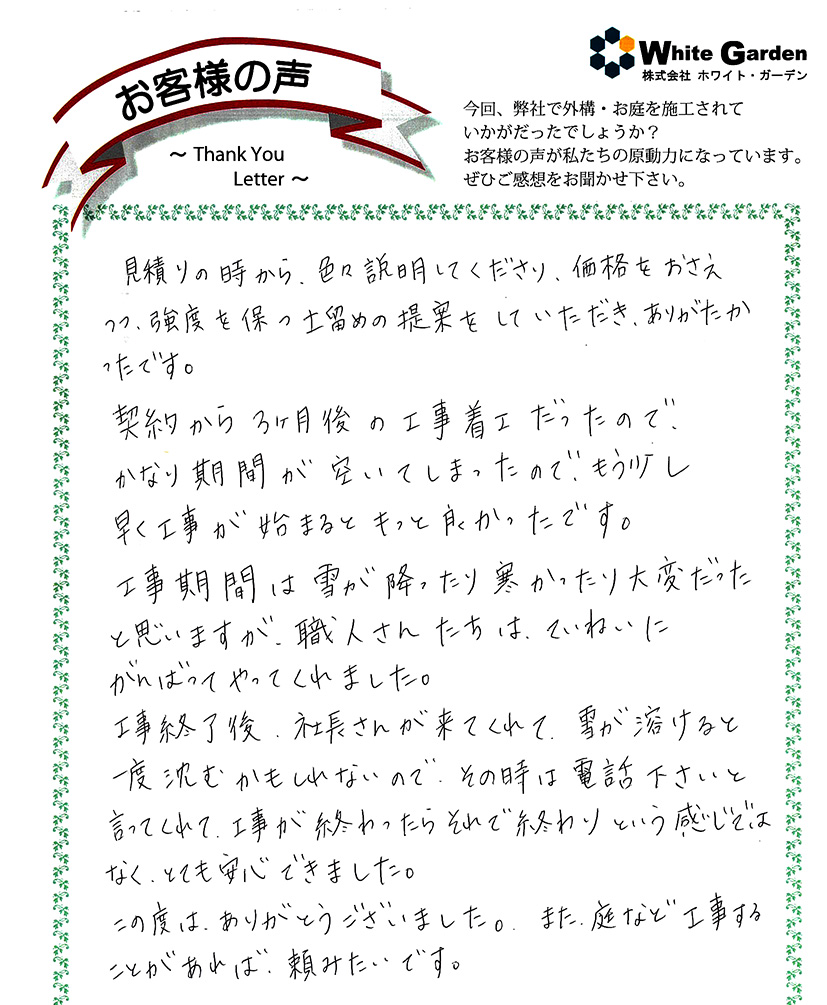 お客様の声
～ Thank You
Letter ～
White Garden
株式会社 ホワイト・ガーデン
今回、弊社で外構・お庭を施工されて
いかがだったでしょうか？
お客様の声が私たちの原動力になっています。
ぜひご感想をお聞かせ下さい。
見積りの時から、色々説明してくださり、価格をおさえ
つつ、強度を保つ土留めの提案をしていただき、ありがたか
ったです。
契約から3ヶ月後の工事着工だったので、
かなり期間が空いてしまったので、もう少し
早く工事が始まるともっと良かったです。
工事期間は雪が降ったり寒かったり大変だった
と思いますが、職人さんたちは、ていねいに
がんばってやってくれました。
工事終了後、社長さんが来てくれて、雪が溶けると
一度沈むかもしれないので、その時は電話下さいと
言ってくれて、工事が終わったらそれで終わりという感じでは
なく、とても安心できました。
この度は、ありがとうございました。また、庭など工事する
ことがあれば、頼みたいです。